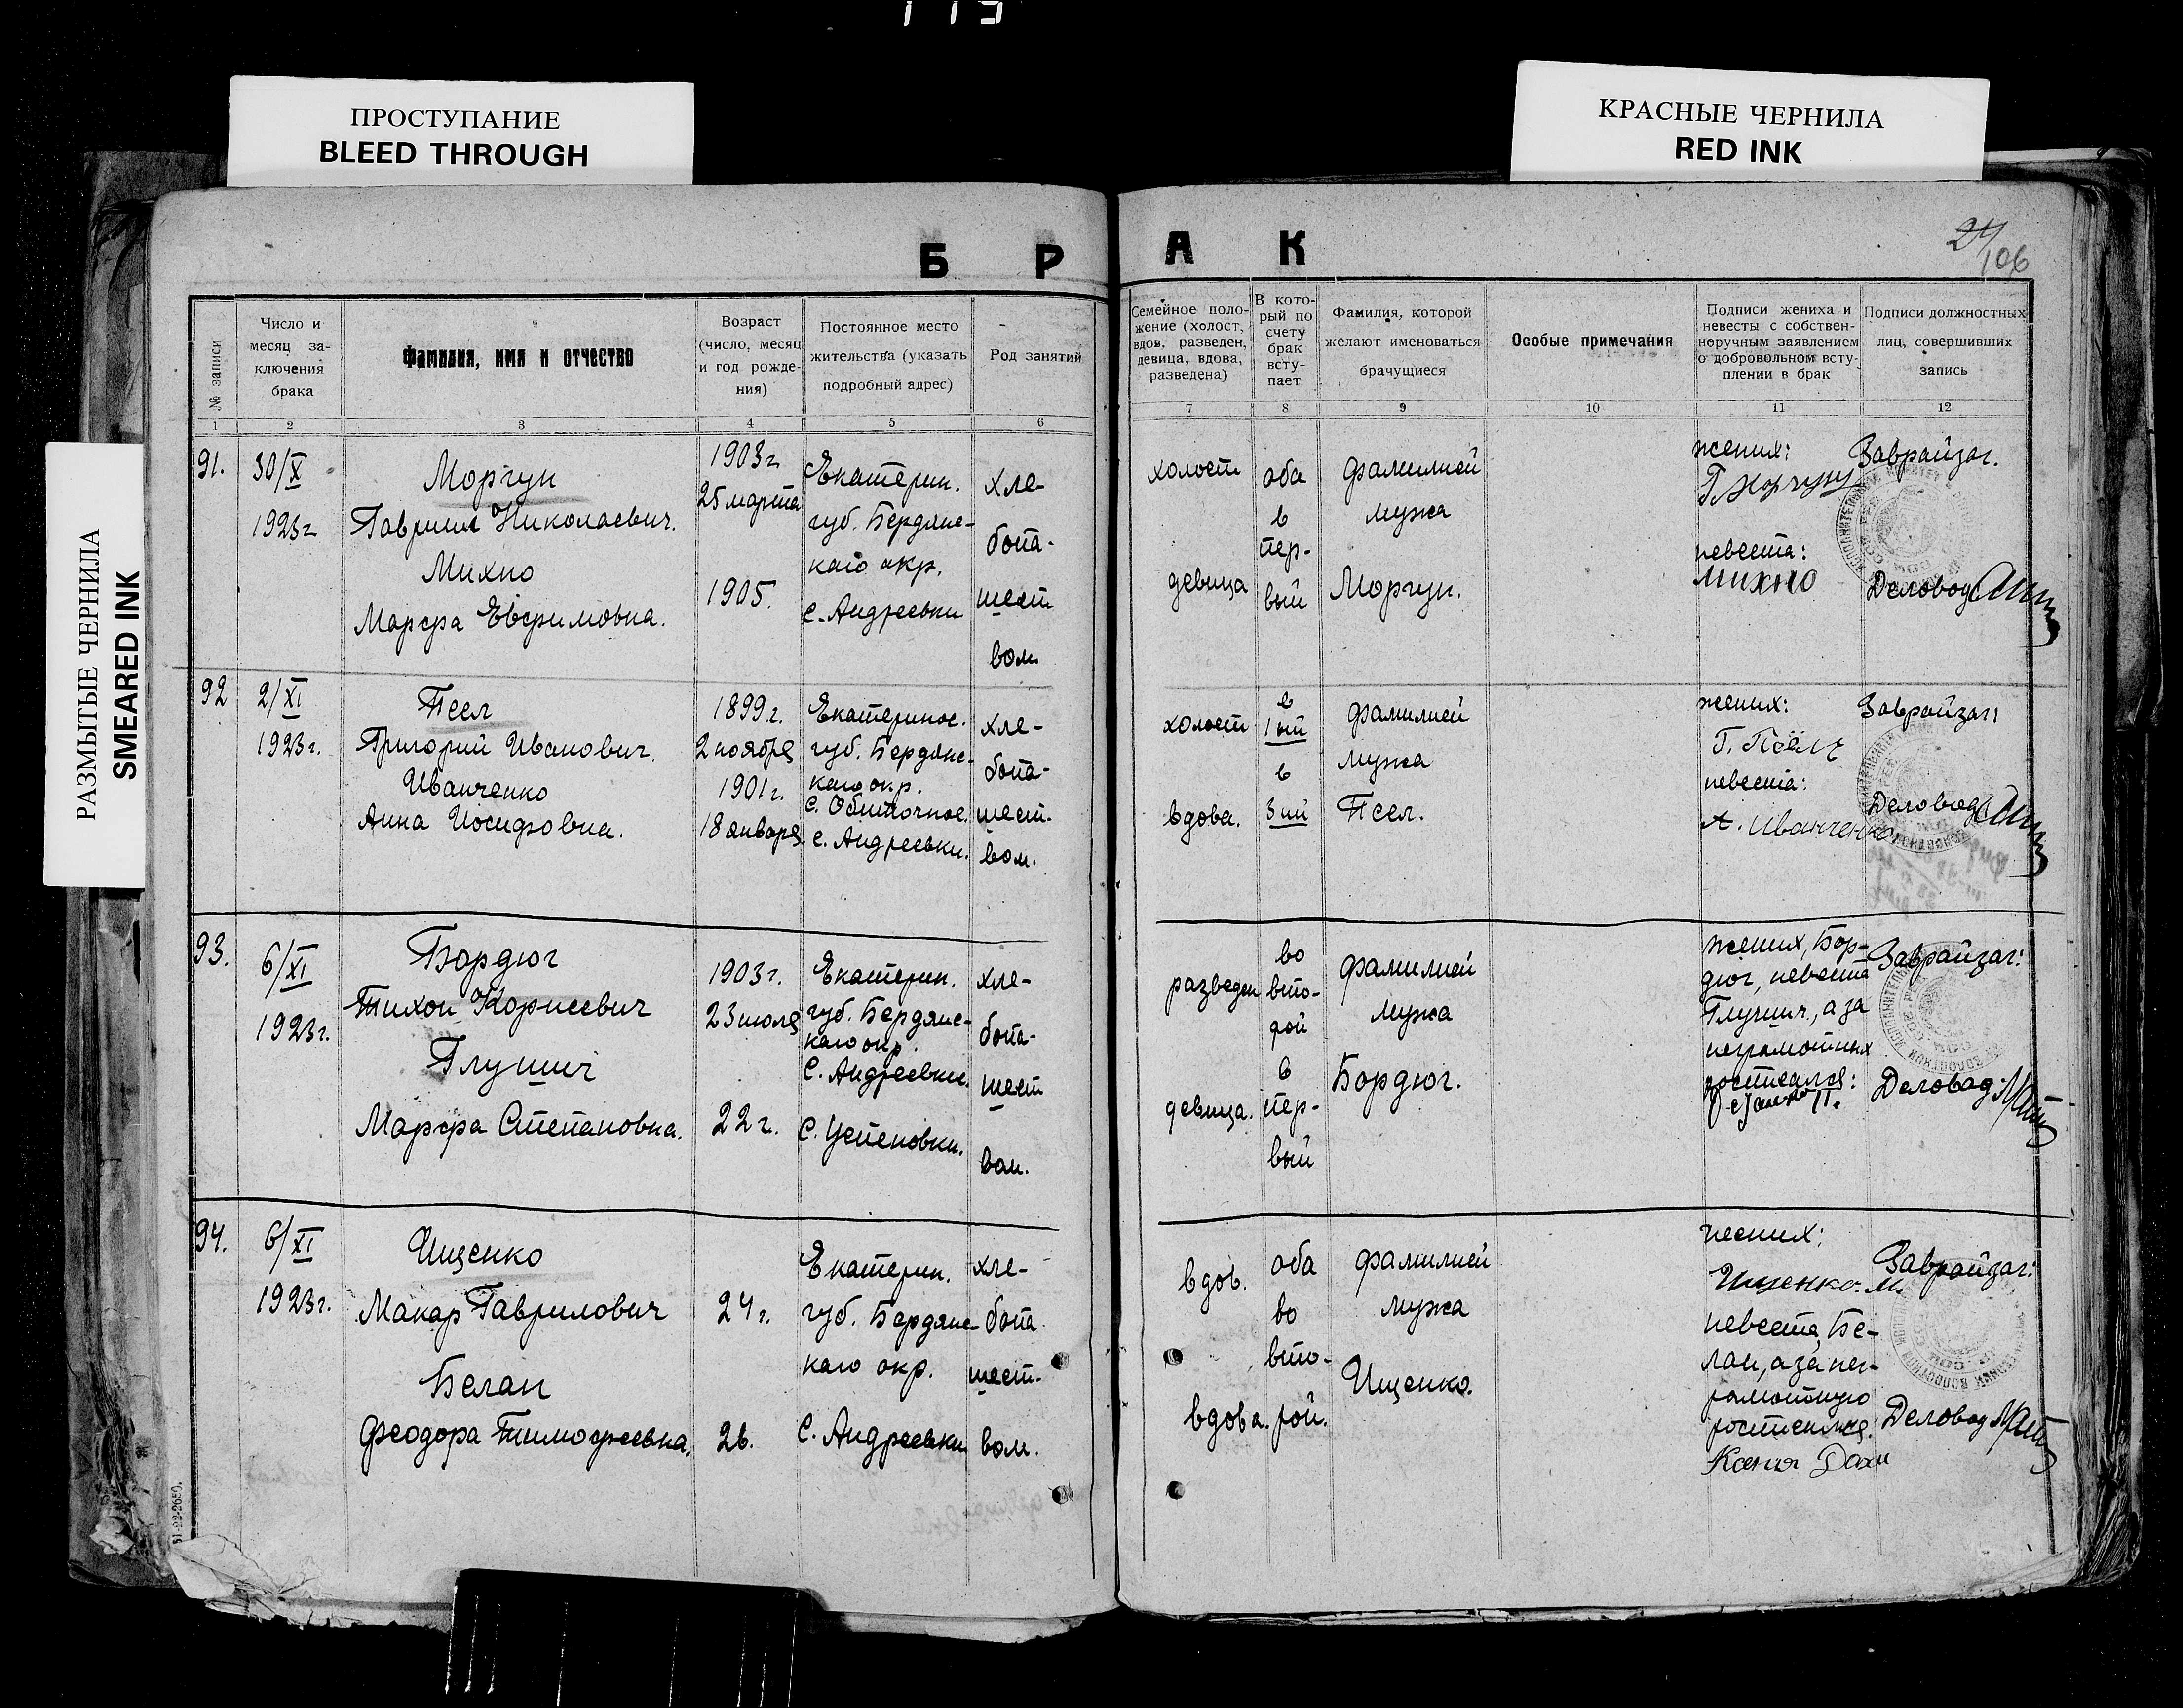 119
ПРОСТУПАНИЕ
BLEED THROUGH
КРАСНЫЕ ЧЕРНИЛА
RED INK
РАЗМЫТЫЕ ЧЕРНИЛА
SMEARED INK
Б Р А К
24/106
№ записи
Число и месяц заключения брака
Фамилия, имя и отчество
Возраст (число, месяц и год рождения)
Постоянное место жительства (указать подробный адрес)
Род занятий
Семейное положение (холост, вдов, разведен, девица, вдова, разведена)
В который по счету брак вступает
Фамилия, которой желают именоваться брачущиеся
Особые примечания
Подписи жениха и невесты с собственноручным заявлением о добровольном вступлении в брак
Подписи должностных лиц, совершивших запись
1 2 3 4 5 6 7 8 9 10 11 12
91.
30/X
1923г
Моргун
Гавриил Николаевич.
Михно
Марфа Евфимовна.
1903г
25 марта
1905.
Екатерин.
губ. Бердянс-
каго окр.
с. Андреевки
хле-
бопа-
шест
вом
холост
девица
оба
в
пер-
вый
фамилией
мужа
Моргун.
жених:
невеста:
Михно
Заврайзаг.
Деловод
92
2/XI
1923г.
Псел
Григорий Иванович.
Иванченко
Анна Иосифовна.
1899г.
2 ноября
1901г.
18 января
Екатеринос.
губ. Бердянс-
каго окр.
с. Обиточное.
с. Андреевки.
хле-
бопа-
шест.
вом.
холост
вдова.
в
1 ый
в
3 ий
фамилией
мужа
Псел.
жених:
невеста:
А. Иванченко
Заврайзаг:
Деловод
93.
6/XI
1923г.
Бордюг
Тихон Корнеевич
Глушич
Марфа Степановна.
1903г.
23 июля
22 г.
Екатерин.
губ. Бердянс-
каго окр.
с. Андреевки.
с. Успеновки.
хле-
бопа-
шест
вом.
разведен
девица.
во
вто-
рой
в
пер-
вый
фамилией
мужа
Бордюг.
жених, Бор-
дюг, невеста
Глушич, а за
неграмотных
росписался:
Заврайзаг:
Деловод:
94.
6/XI
1923г.
Ищенко
Макар Гаврилович
Белан
Феодора Тимофеевна,
24 г.
26.
Екатерин.
губ. Бердянс-
каго окр.
с. Андреевки
хле-
бопа
шест.
вом.
вдов.
вдова.
оба
во
вто-
рой.
фамилией
мужа
Ищенко.
жених:
Ищенко. М.
невеста, Бе-
лан, а за нег-
рамотную
росписался:
Заврайзаг:
Деловод
51-22-2650.